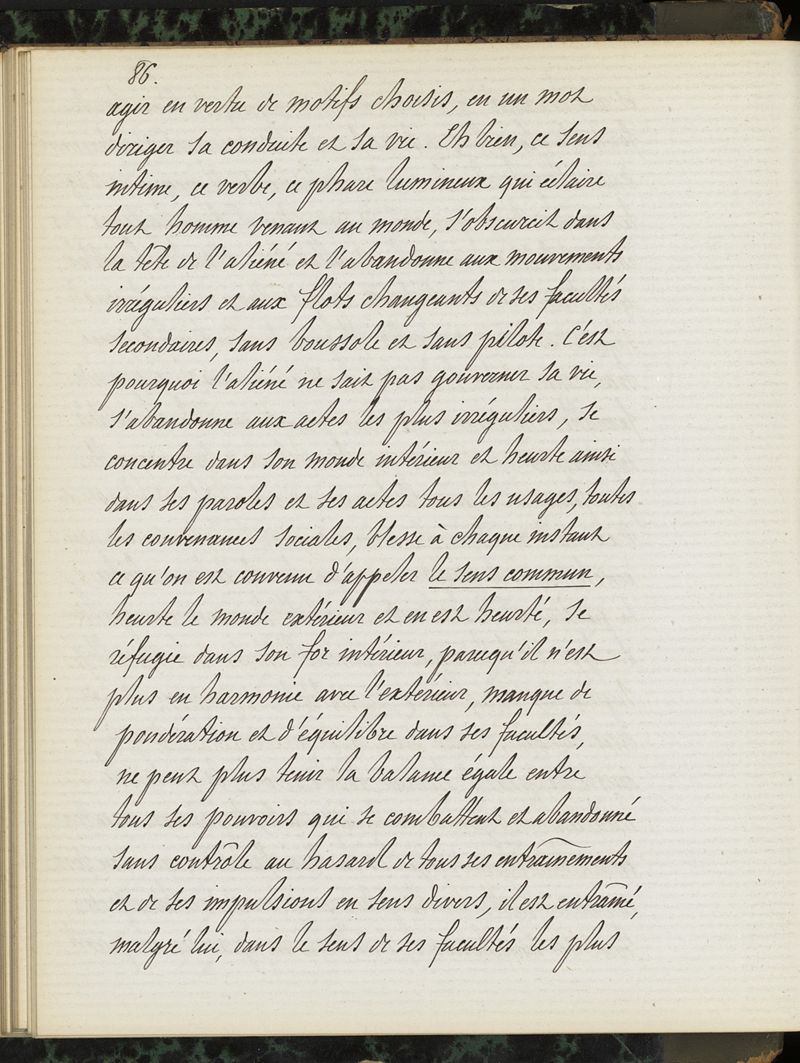 86.
agir en vertu de motifs choisis, en un mot
diriger sa conduite et sa vie. Eh bien, ce sens
intime, ce verbe, ce phare lumineux qui éclaire
tout homme venant au monde, s'obscurcit dans
la tête de l'aliéné et l'abandonne aux mouvements
irréguliers et aux flots changeants de ses facultés
secondaires, sans boussole et sans pilote. C'est
pourquoi l'aliéné ne sait pas gouverner sa vie,
s'abandonne aux actes les plus irréguliers, se
concentre dans son monde intérieur et heurte ainsi
dans ses paroles et ses actes tous les usages, toutes
les convenances sociales, blesse à chaque instant
ce qu'on est convenu d'appeler le sens commun,
heurte le monde extérieur et en est heurté, se
réfugie dans son for intérieur, parcequ'il n'est
plus en harmonie avec l'extérieur, manque de
pondération et d'équilibre dans ses facultés,
ne peut plus tenir la balance égale entre
tous ses pouvoirs qui se combattent et abandonné
sans contrôle au hasard de tous ses entraînements
et de ses impulsions en sens divers, il est entraîné,
malgré lui, dans le sens de ses facultés les plus